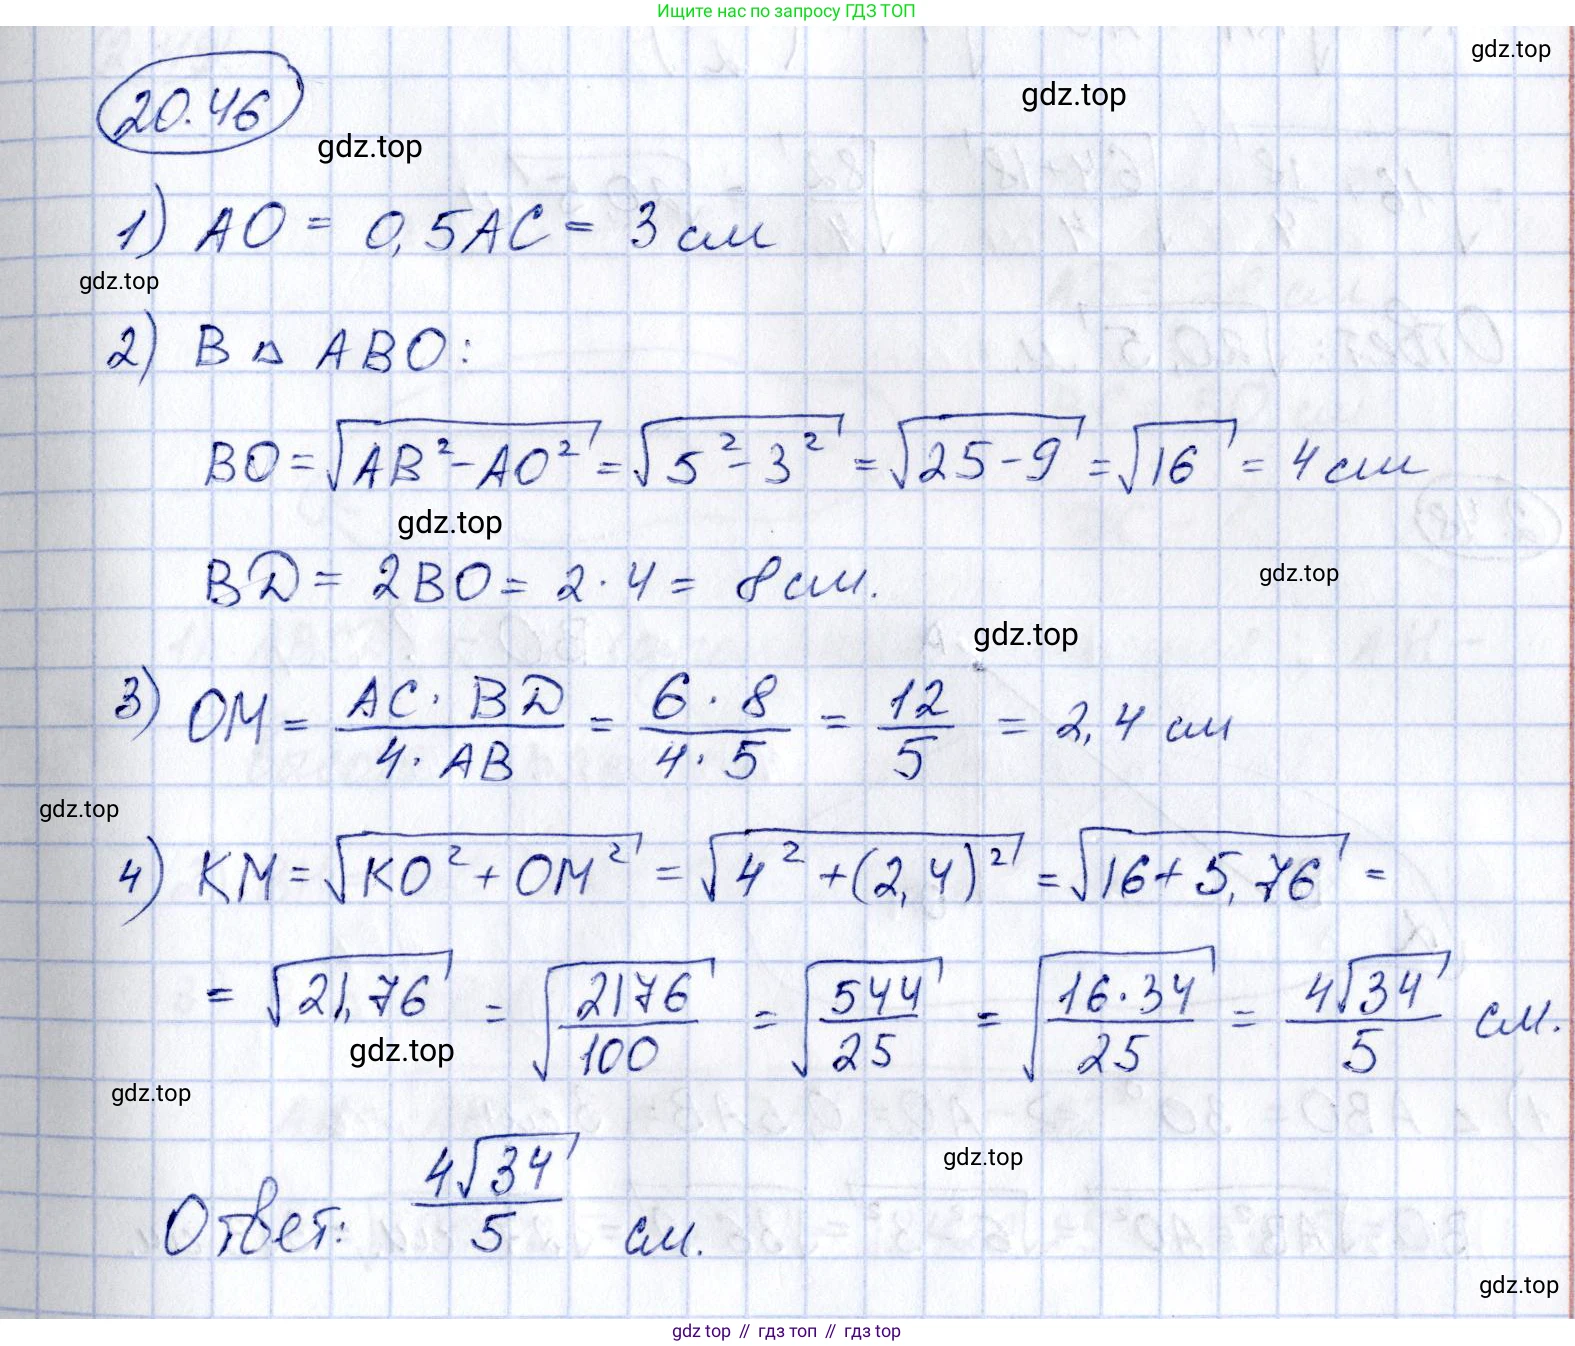 Ищите нас по запросу ГДЗ ТОП
gdz.top
gdz.top
20.46
gdz.top
1) AO = 0,5AC = 3 см
gdz.top
2) В △ ABO:
BO = √(AB² - AO²) = √(5² - 3²) = √(25 - 9) = √16 = 4 см
gdz.top
gdz.top
BD = 2BO = 2 · 4 = 8 см.
gdz.top
3) OM = (AC · BD)/(4 · AB) = (6 · 8)/(4 · 5) = 12/5 = 2,4 см
gdz.top
4) KM = √(KO² + OM²) = √(4² + (2,4)²) = √(16 + 5,76) =
= √21,76 = √(2176/100) = √(544/25) = √((16 · 34)/25) = 4√34/5 см.
gdz.top
gdz.top
gdz.top
Ответ: 4√34/5 см.
gdz.top
gdz top // гдз топ // гдз top